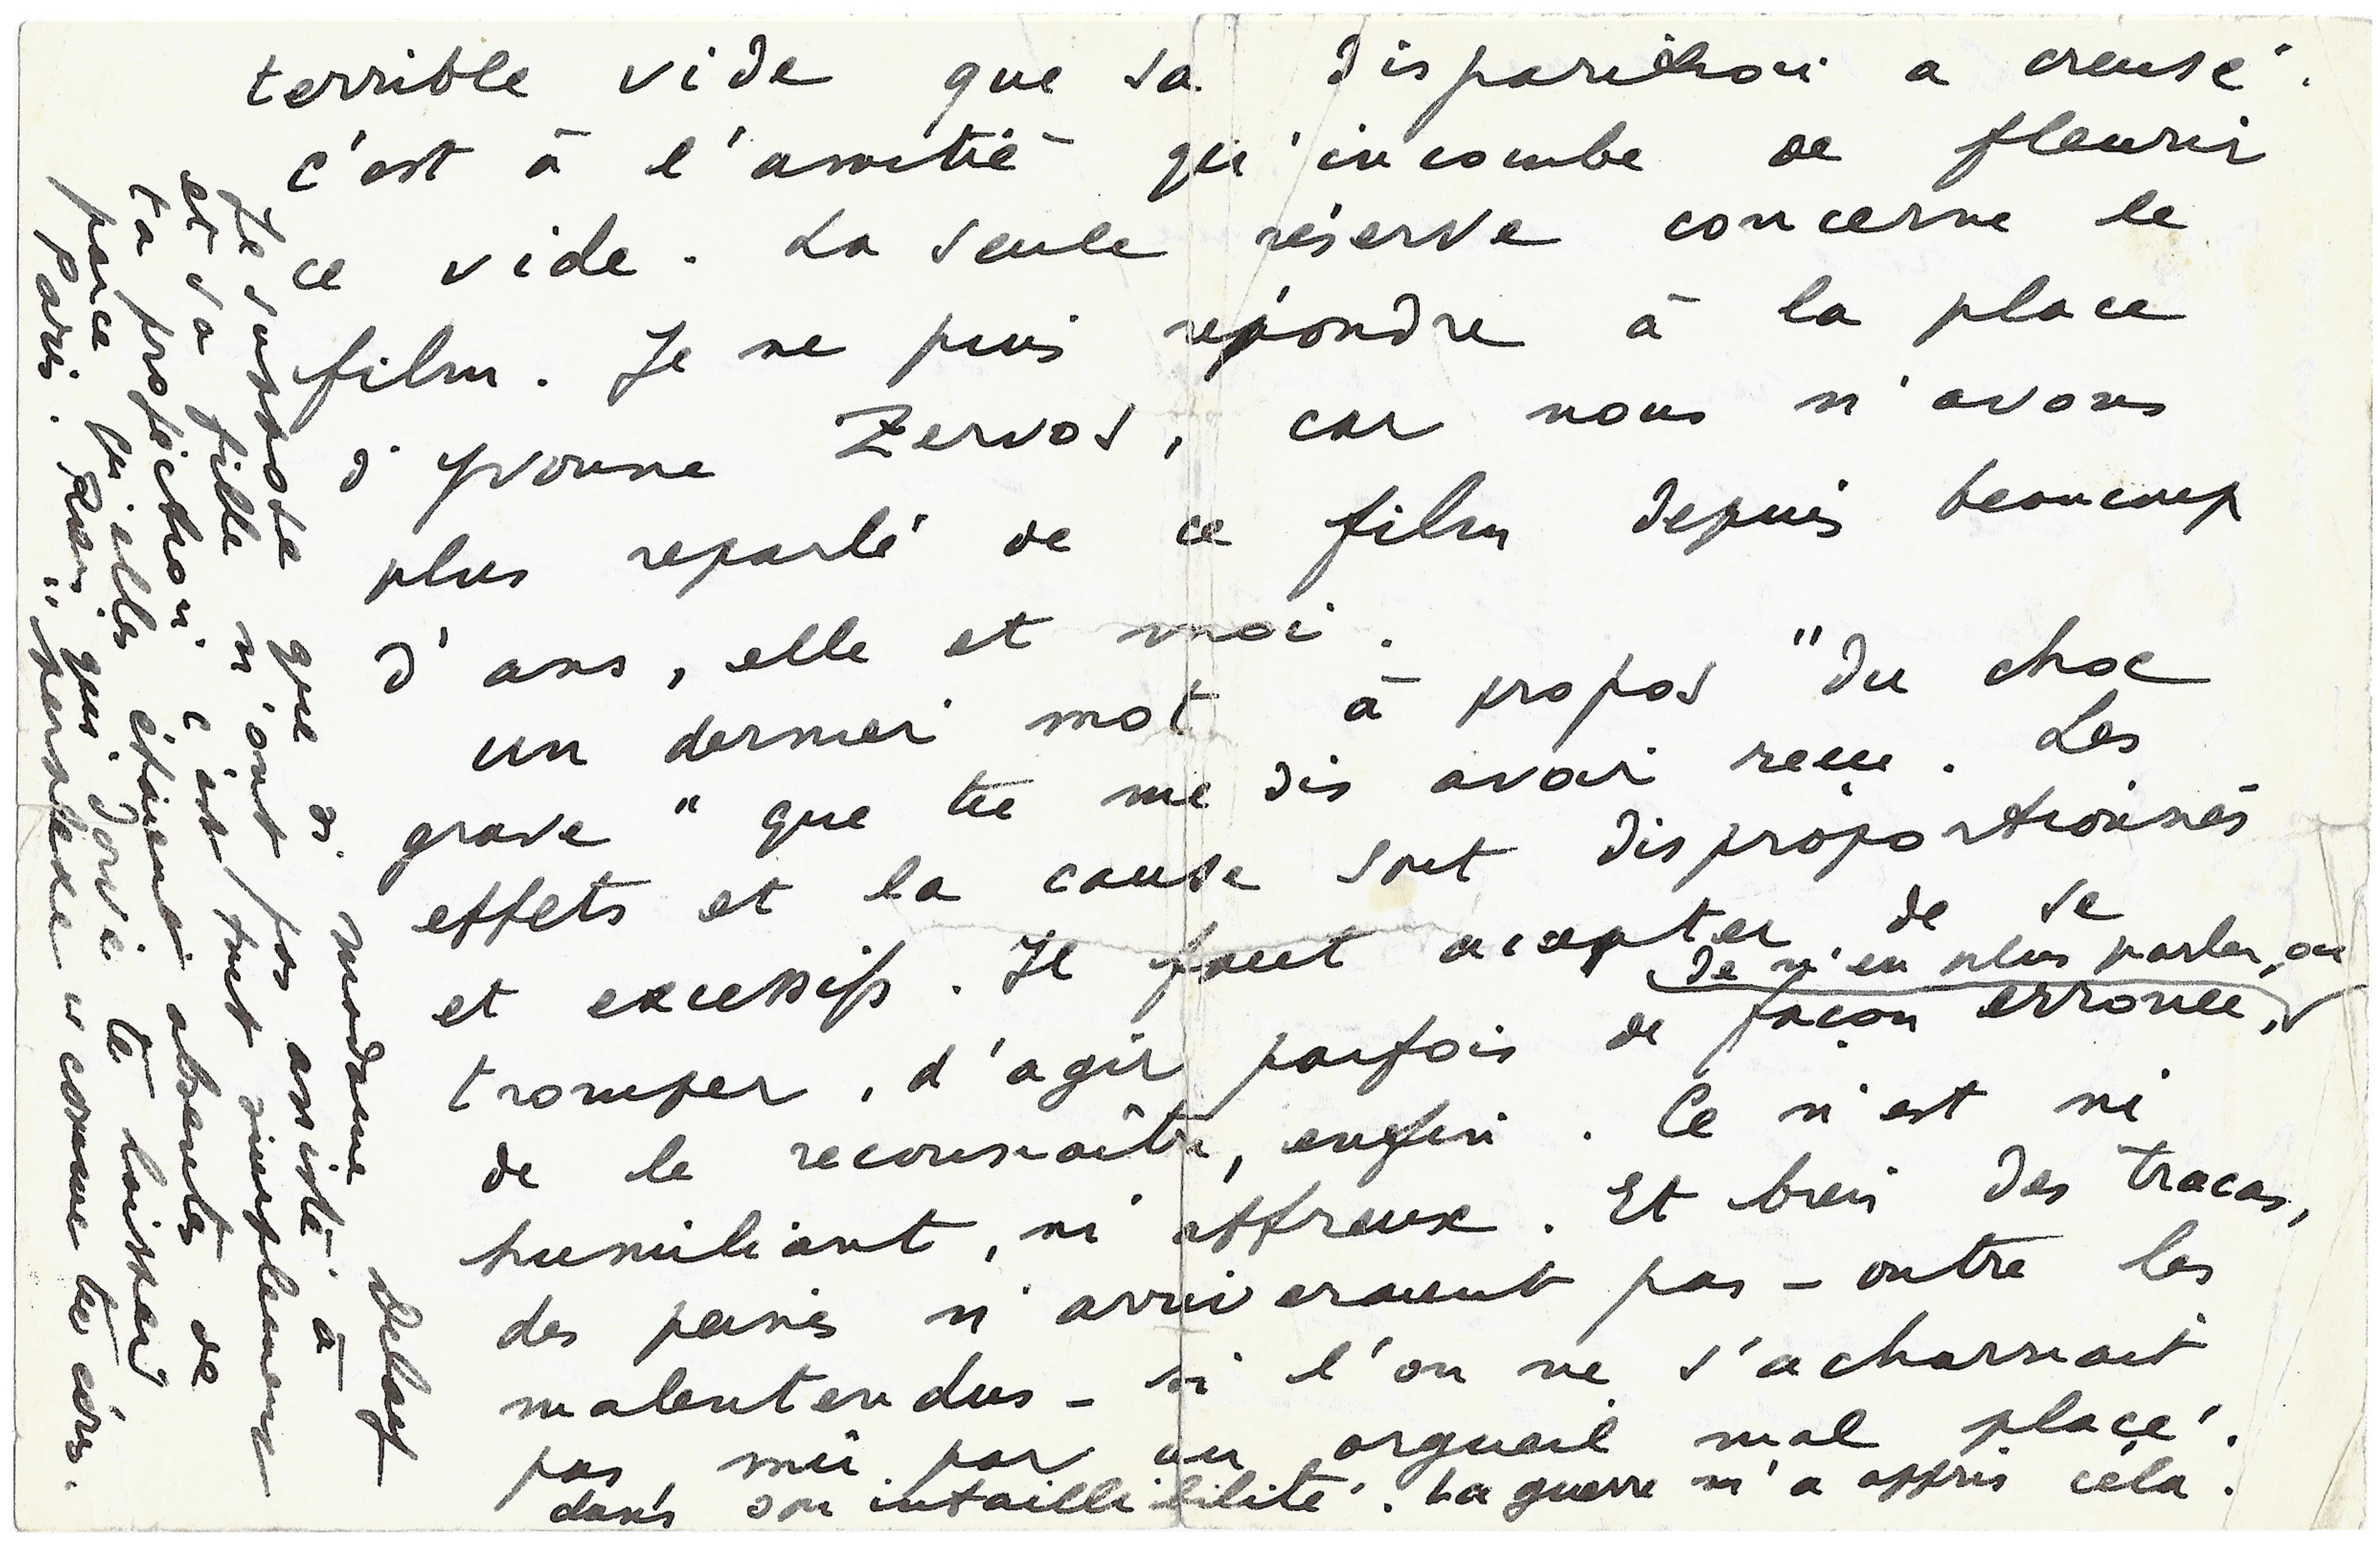 terrible vide que sa disparition a creusé.
C'est à l'amitié qu'incombe de fleurir
ce vide. La seule réserve concerne le
film. Je ne puis répondre à la place
d'Yvonne Zervos, car nous n'avons
plus reparlé de ce film depuis beaucoup
d'ans, elle et moi.
Un dernier mot à propos "du choc
grave" que tu me dis avoir reçu. Les
effets et la cause sont disproportionnés
et excessifs. Il faut accepter, de se
de n'en plus parler, ou
tromper, d'agir parfois de façon erronée,
de le reconnaître, enfin. Ce n'est ni
humiliant, ni affreux. Et bien des tracas,
des peines n'arriveraient pas - outre les
malentendus - si l'on ne s'acharnait
pas, mû par un orgueil mal placé.
dans son infaillibilité. La guerre m'a appris cela.
Je suppose que si Madame Delay
et sa fille n'ont pas assisté à
ta projection c'est tout simplement
parce qu'elles étaient absentes de
Paris. Rien qui doive te laisser
"perplexe" comme tu écris.